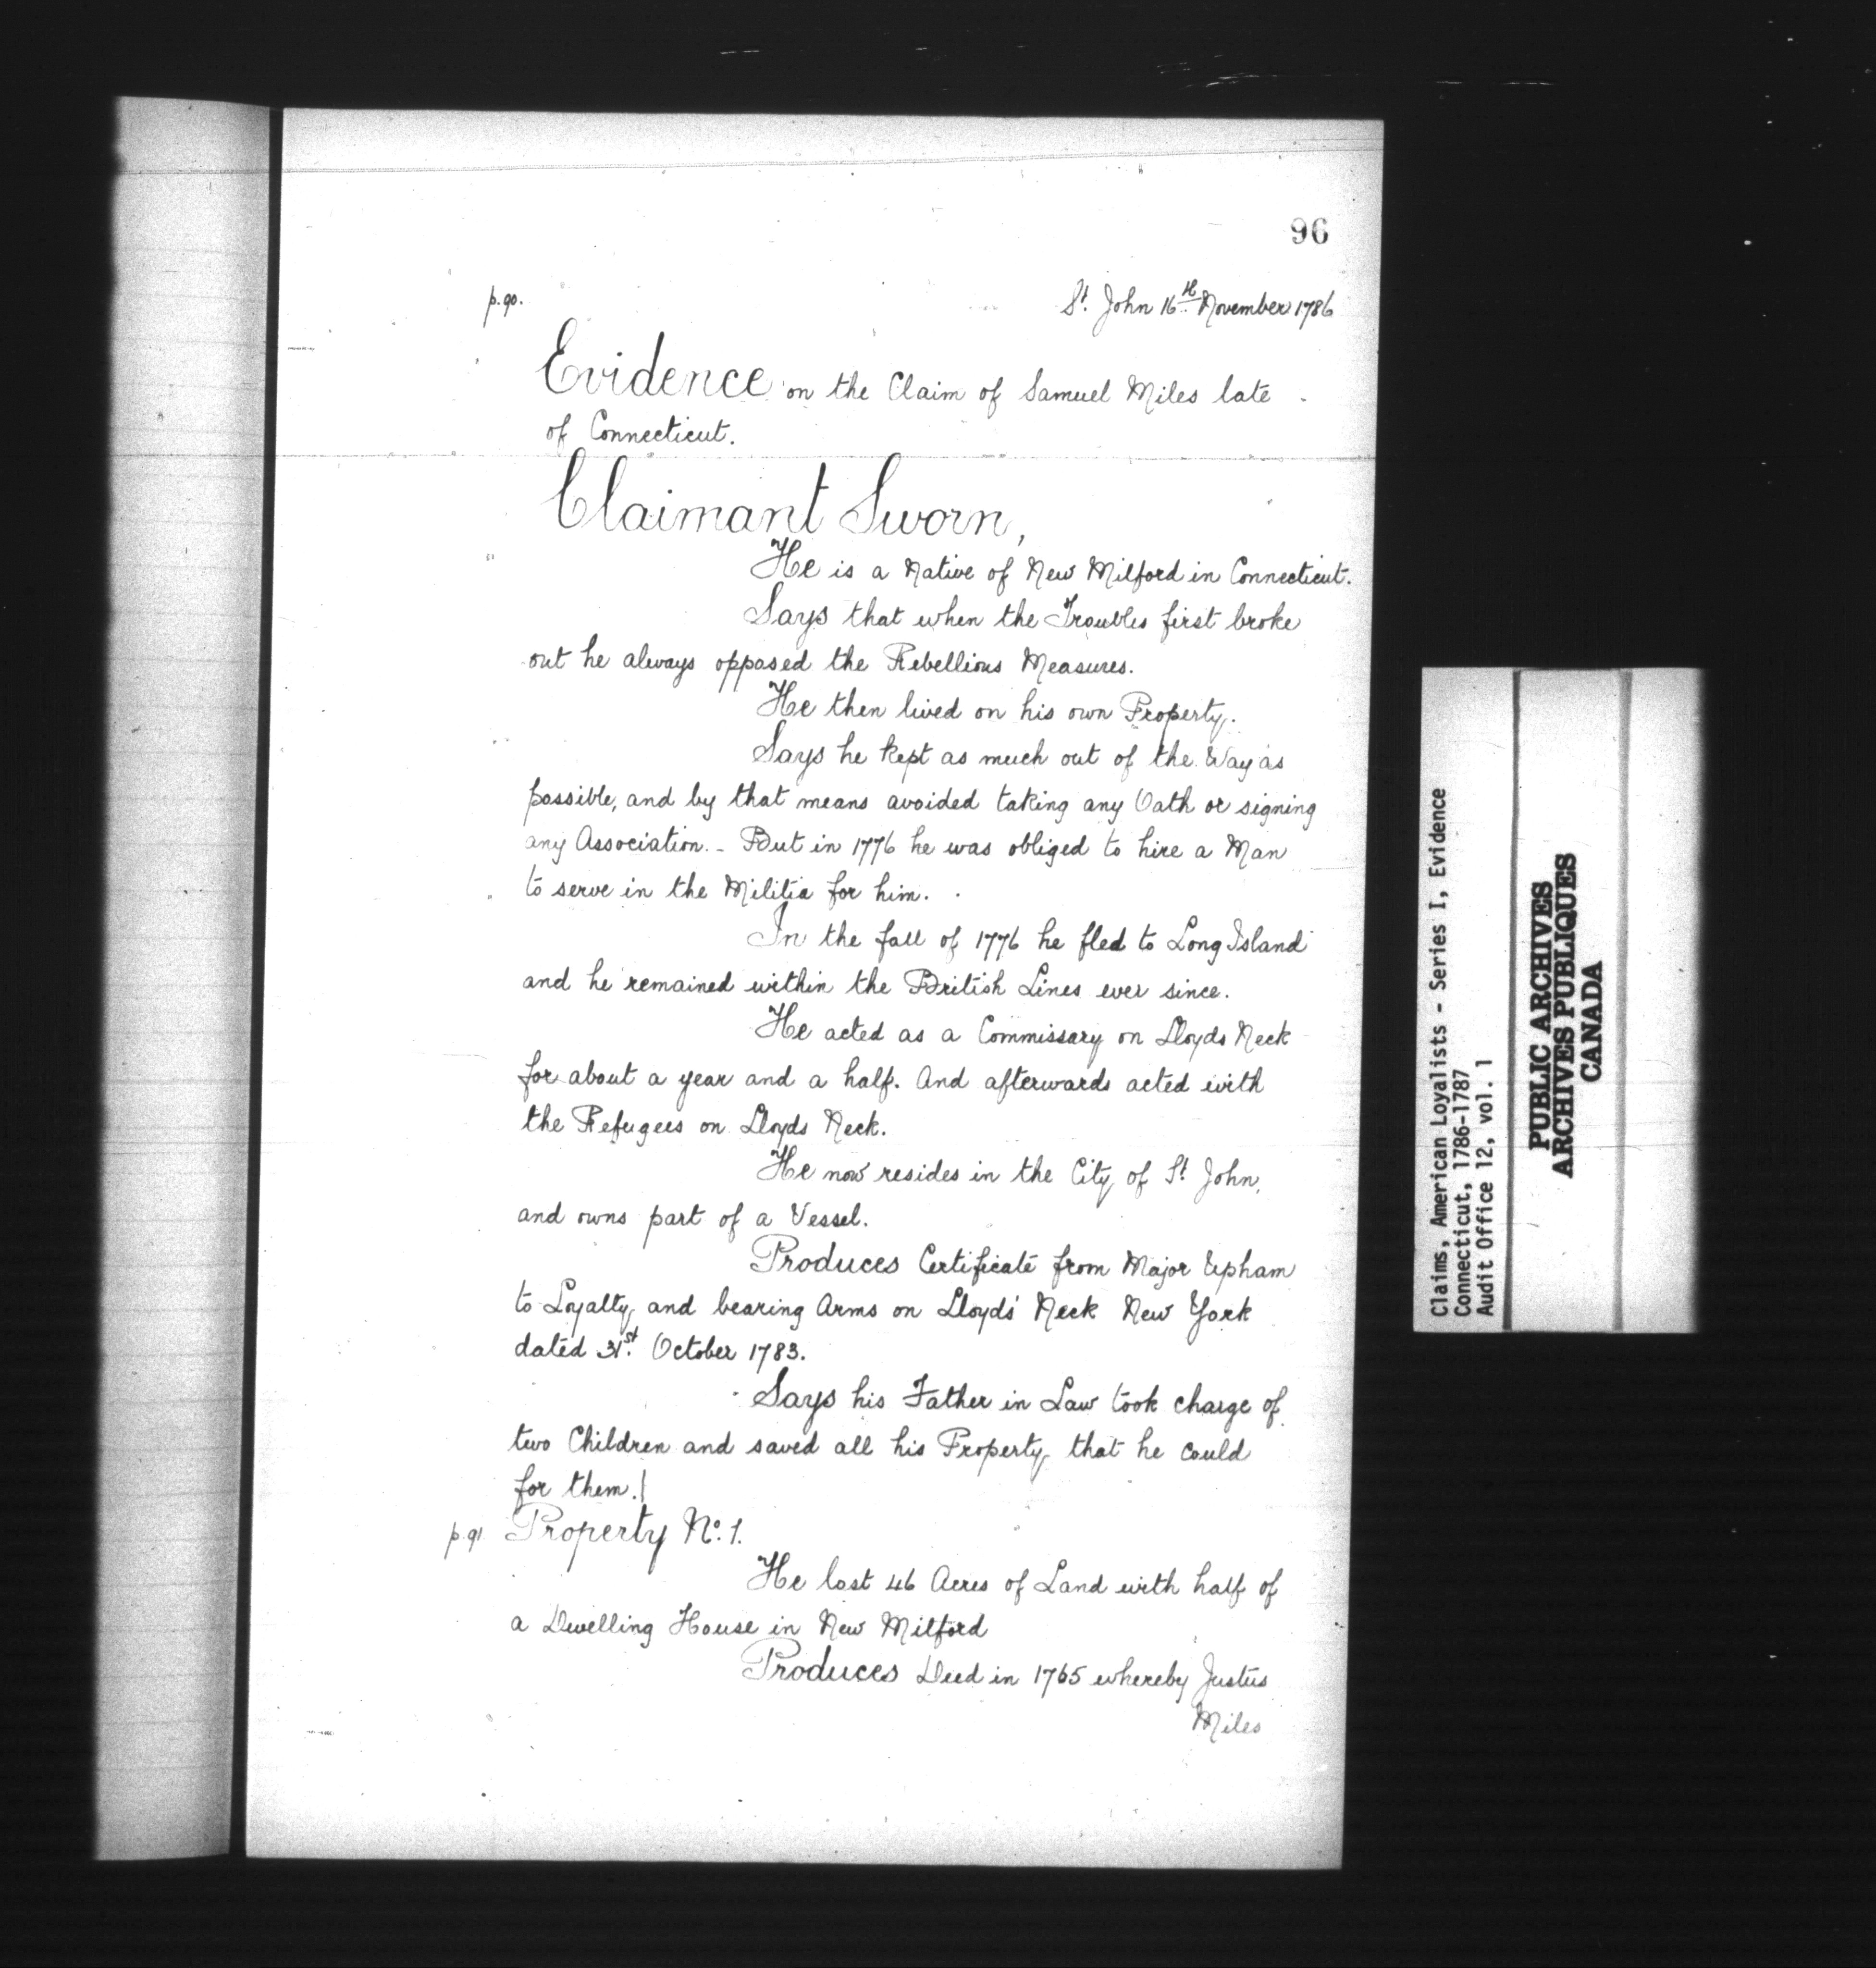 96
p. 90.
St. John 16th November 1786
Evidence on the Claim of Samuel Miles late
of Connecticut.
Claimant Sworn,
He is a Native of New Milford in Connecticut.
Says that when the Troubles first broke
out he always opposed the Rebellious Measures.
He then lived on his own Property.
Says he kept as much out of the Way as
possible, and by that means avoided taking any Oath or signing
any Association. - But in 1776 he was obliged to hire a Man
to serve in the Militia for him.
In the fall of 1776 he fled to Long Island
and he remained within the British Lines ever since.
He acted as a Commissary on Lloyds Neck
for about a year and a half. And afterwards acted with
the Refugees on Lloyds Neck.
He now resides in the City of St. John,
and owns part of a Vessel.
Produces Certificate from Major Upham
to Loyalty and bearing Arms on Lloyds' Neck New York
dated 31st. October 1783.
Says his Father in Law took charge of
two Children and saved all his Property that he could
for them.
p. 91 Property No. 1.
He lost 46 Acres of Land with half of
a Dwelling House in New Milford
Produces Deed in 1765 whereby Justus
Miles
Claims, American Loyalists - Series I, Evidence
Connecticut, 1786-1787
Audit Office 12, vol. 1
PUBLIC ARCHIVES
ARCHIVES PUBLIQUES
CANADA